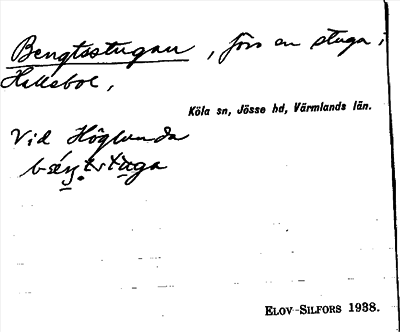 Bengtsstugan, förr en stuga i
Hallsbol,
Köla sn, Jösse hd, Värmlands län.
Vid Höglunda
ELOV-SILFORS 1938.